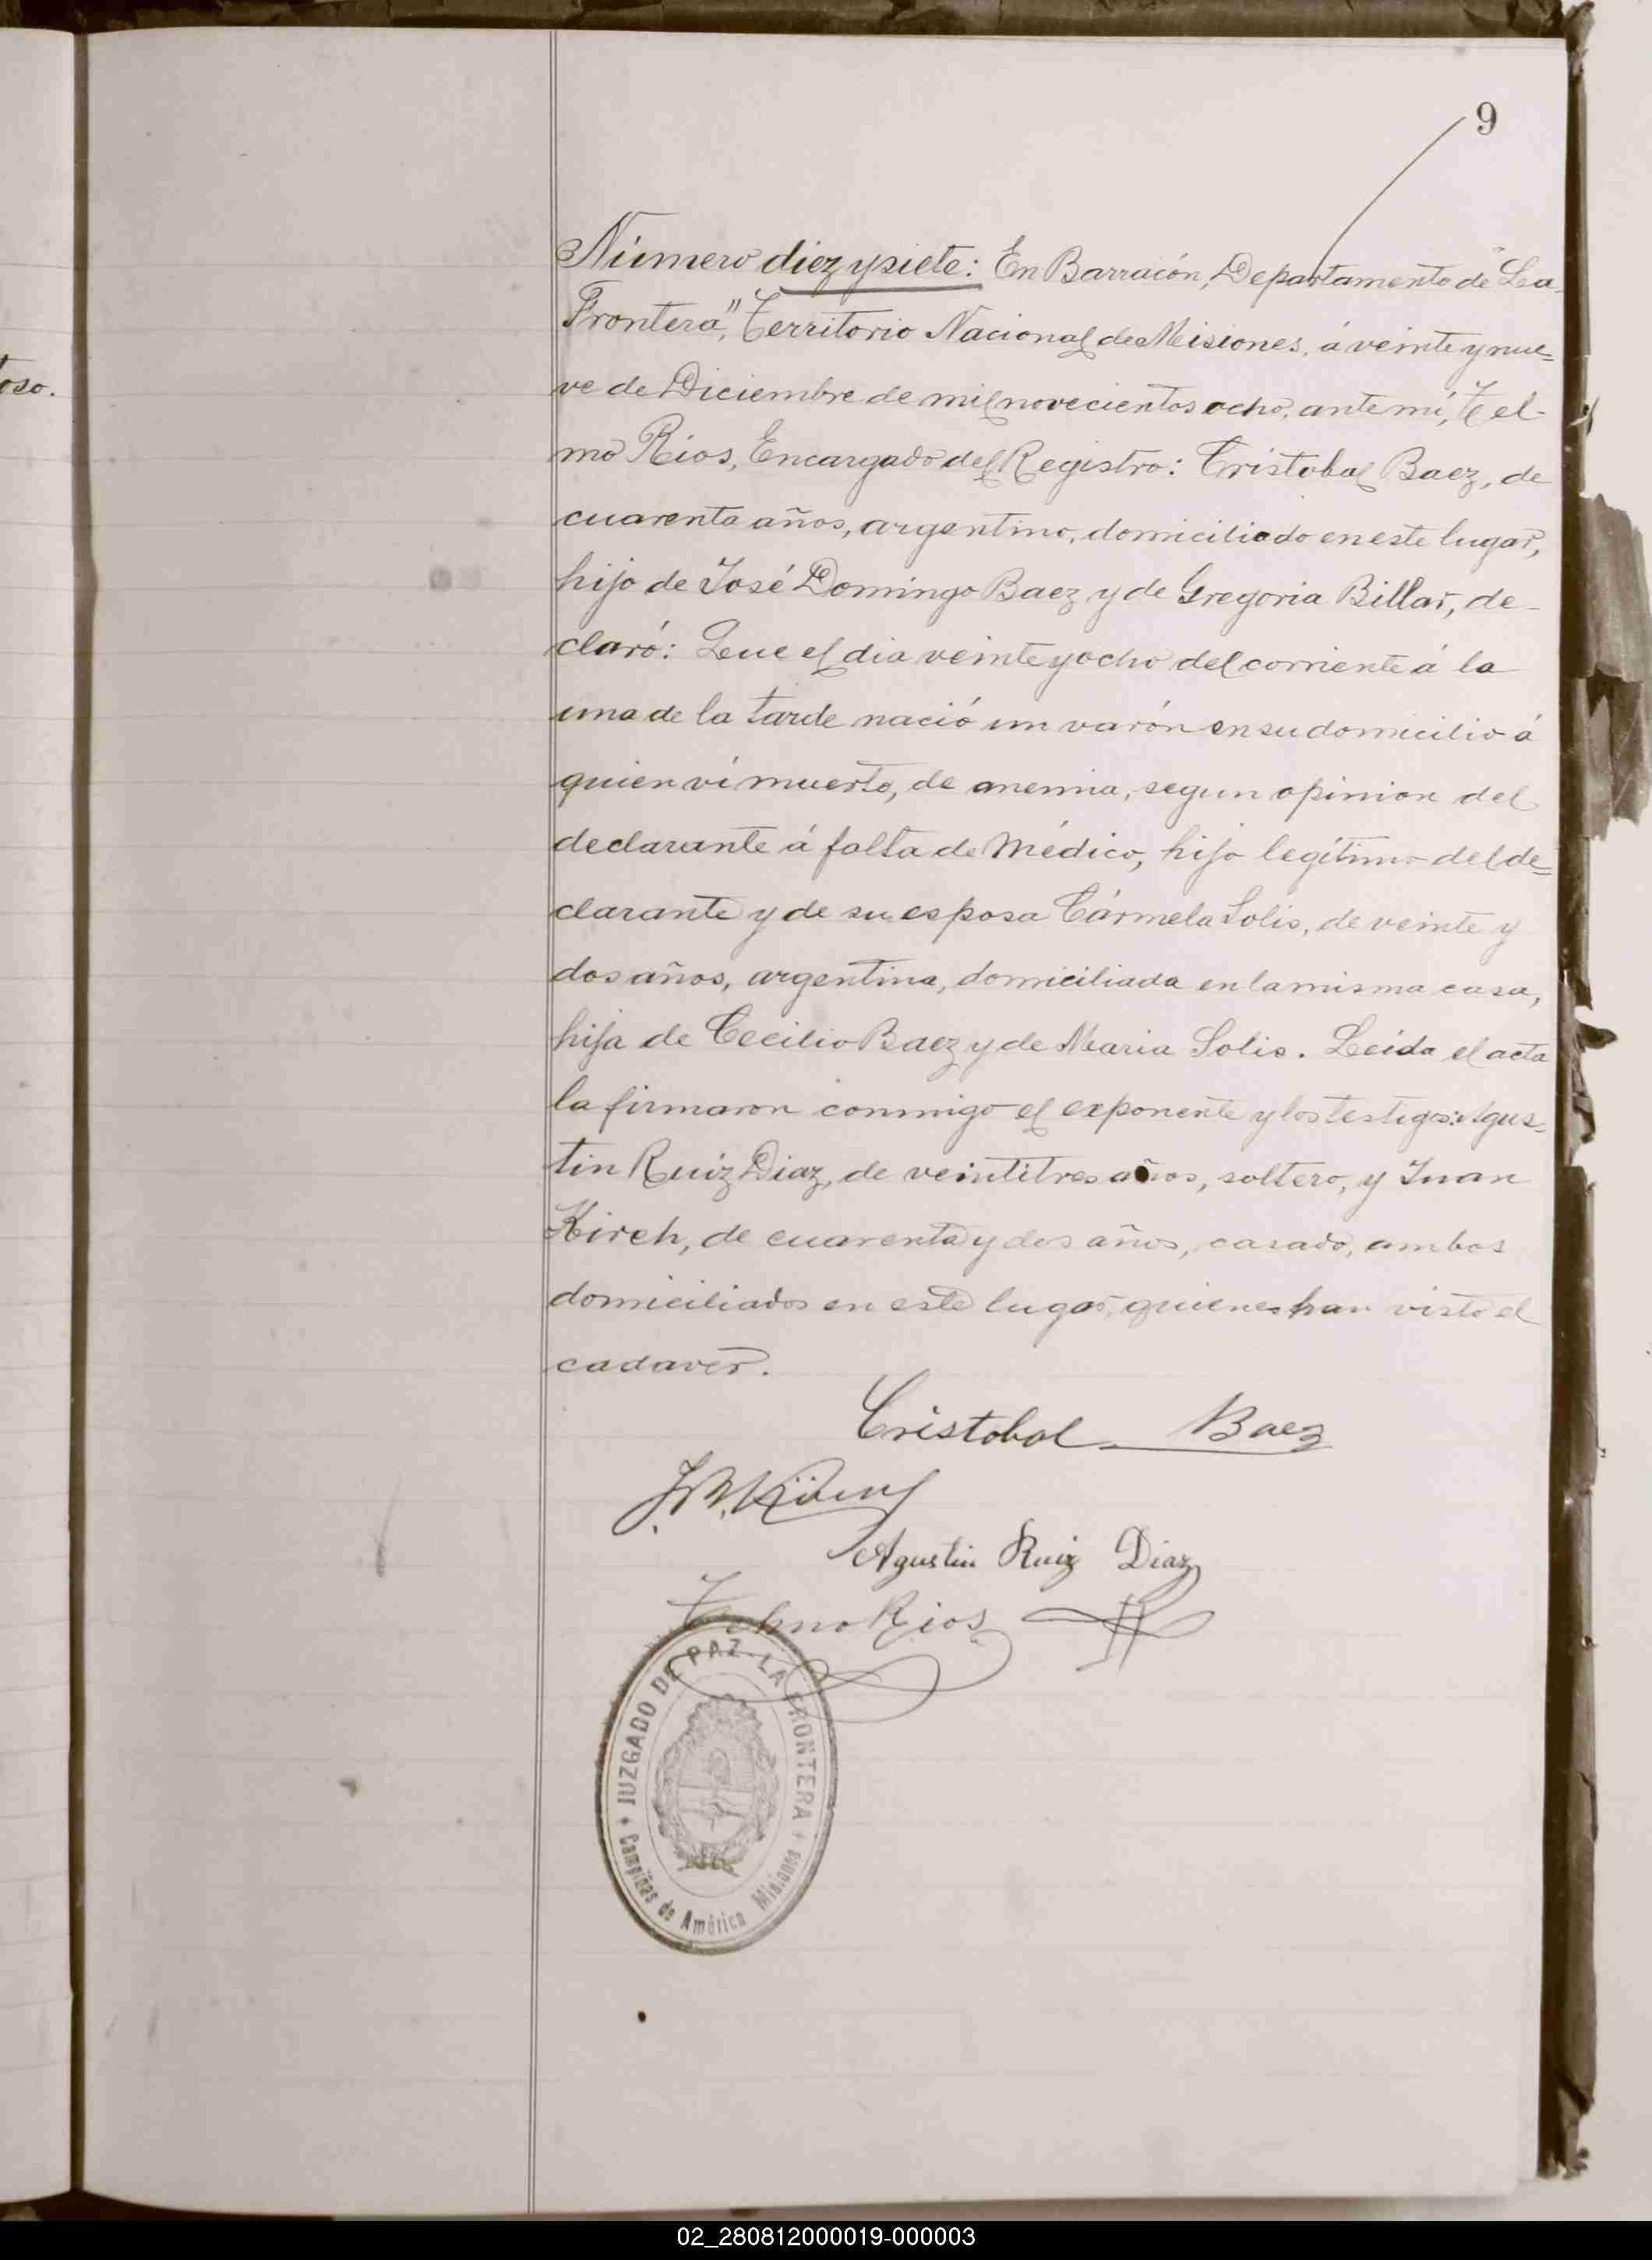 9
Número diez y siete: En Barracón, Departamento de "La
Frontera", Territorio Nacional de Misiones, á veinte y nue=
ve de Diciembre de mil novecientos ocho, ante mí, Tel-
mo Rios, Encargado del Registro: Cristobal Baez, de
cuarenta años, argentino, domiciliado en este lugar,
hijo de José Domingo Baez y de Gregoria Billar, de-
claró: Que el dia veinte y ocho del corriente á la
una de la tarde nació un varón en su domicilio á
quien ví muerto, de anemia, segun opinion del
declarante á falta de Médico, hijo legítimo del de=
clarante y de su esposa Cármela Solis, de veinte y
dos años, argentina, domiciliada en la misma casa,
hija de Cecilio Baez y de Maria Solis. Leida el acta
la firmaron conmigo el exponente y los testigos: Agus=
tin Ruiz Diaz, de veintitres años, soltero, y Juan
Kirch, de cuarenta y dos años, casado, ambos
domiciliados en este lugar, quienes han visto el
cadaver.
toso.
Cristobal Baez
Agustin Ruiz Diaz
Telmo Rios
JUZGADO DE PAZ - LA FRONTERA
Campiñas de América Misiones
02_280812000019-000003